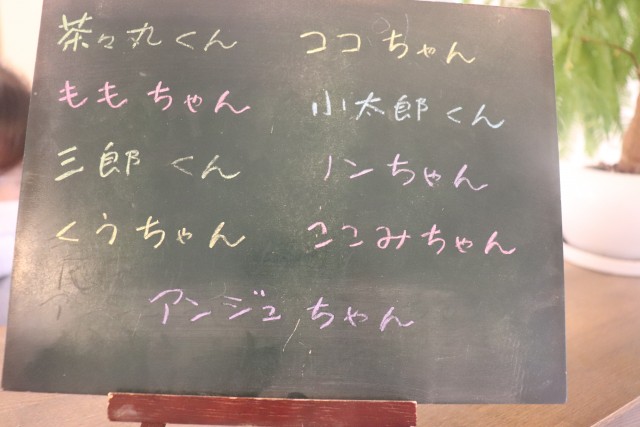 茶々丸くん ココちゃん
ももちゃん 小太郎くん
三郎くん ノンちゃん
くうちゃん ここみちゃん
アンジュちゃん